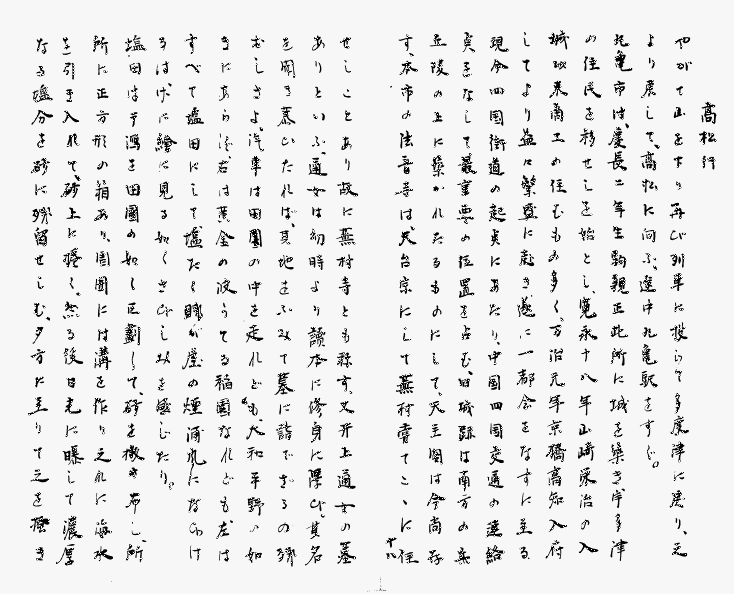 高松行
やがて山を下り再び列車に投じて多度津に還り、之
より発して、高松に向ふ、途中丸亀駅をすぐ。
丸亀市は、慶長二年生駒親正此所に城を築き宇多津
の住民を移せしを始とし、寛永十八年山崎家治の入
城以来商工の住むもの多く、万治元年京極高知入府
してより益に繁盛に赴き遂に一都会をなすに至る
現今四国街道の起点にあたり、中国四国交通の連絡
点をなして最重要の位置を占む、旧城跡は南方の
丘陵の上に築かれたるものにして、天主閣は今尚存
す、本市の法音寺は、天台宗にして蕪村嘗てこゝに住
十八
せしことあり故に蕪村寺とも称す、又井上通女の墓
ありといふ、通女は幼時より読本に修身に厚び、其名
を聞き慕ひたれば、其地をふみて墓に詣でざるの残
むしさよ、汽車は田圃の中を走れども、大和平野の如
きにあらず、右は黄金の波うてる稲園なれども左は
すべて塩田にして塩たく賤が屋の煙満れになびけ
るはげに絵に見る如くさびしみを感じたり。
塩田は干潟を田園の如く区劃して、砂を撒き布し、所
所に正方形の箱あり、周囲には溝を作り之れに海水
を引き入れて、砂上に撒く、然る後日光に曝して濃厚
なる塩分を砂に残留せしむ、夕方に至りて之を掻き